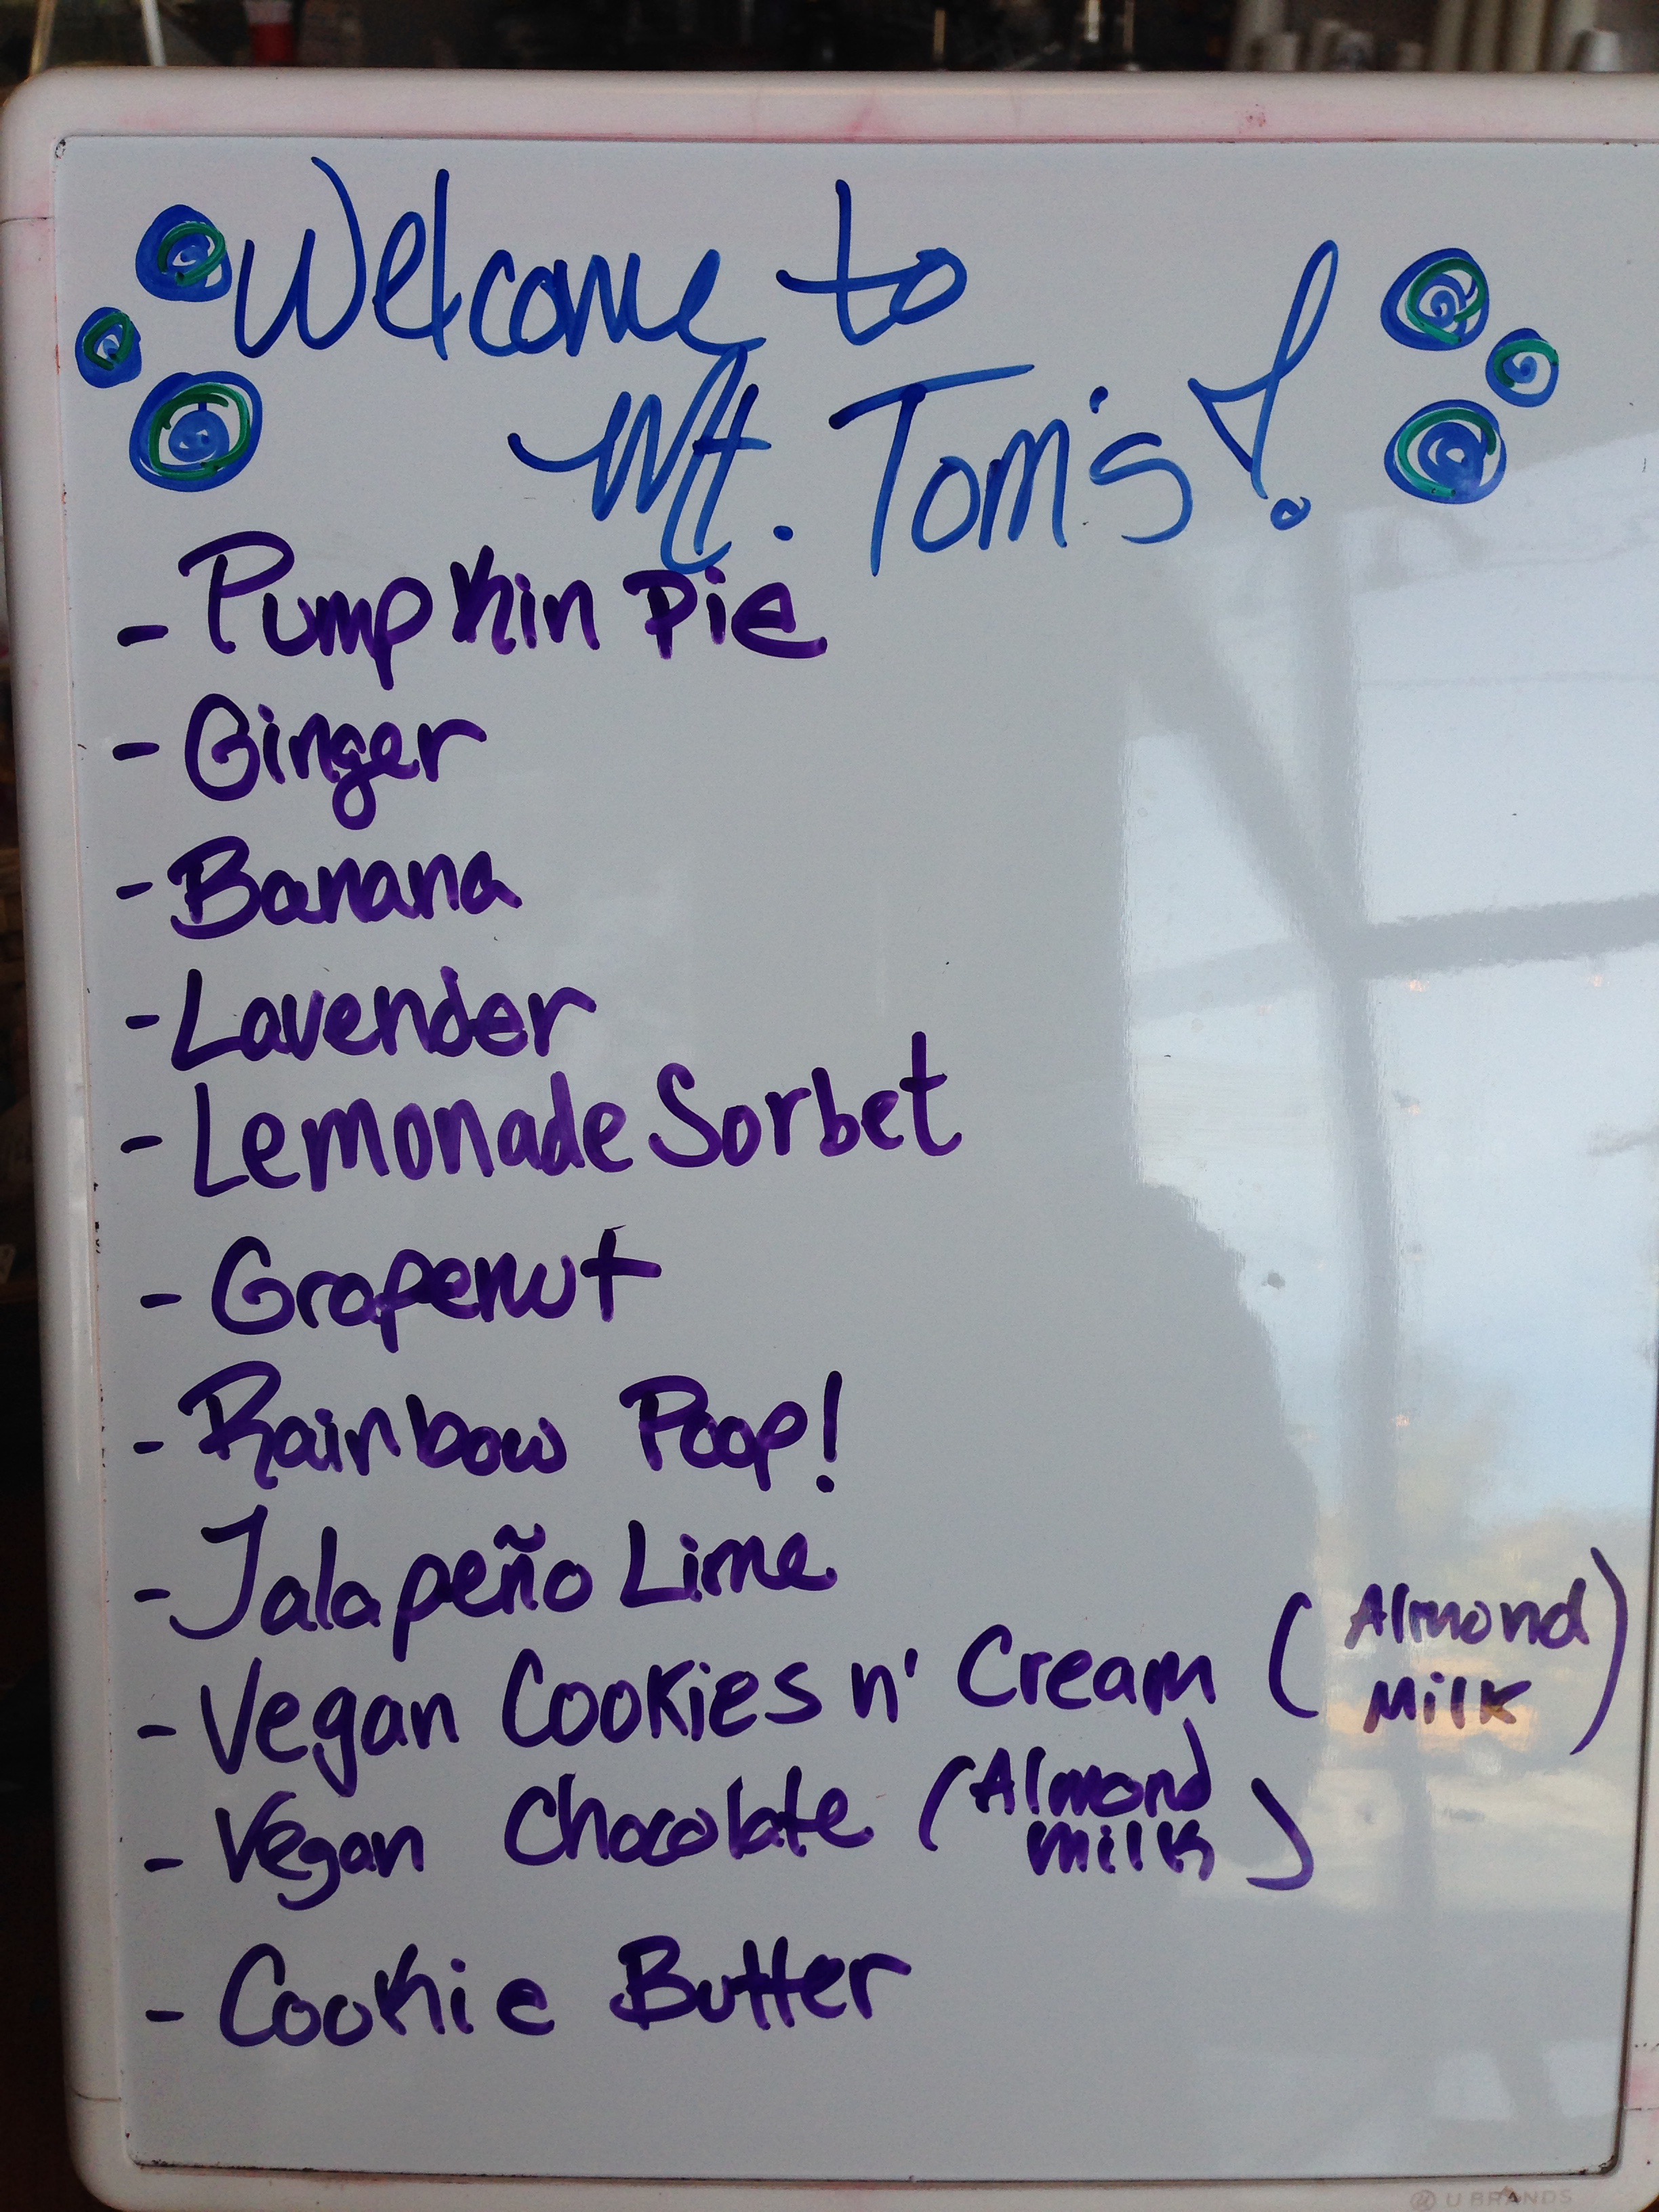 Welcome to
Mt. Tom's!
- Pumpkin Pie
- Ginger
- Banana
- Lavender
- Lemonade Sorbet
- Grapenut
- Rainbow Poop!
- Jalapeño Lime
- Vegan Cookies n' Cream (Almond
Milk)
- Vegan Chocolate (Almond
Milk)
- Cookie Butter
U BRANDS